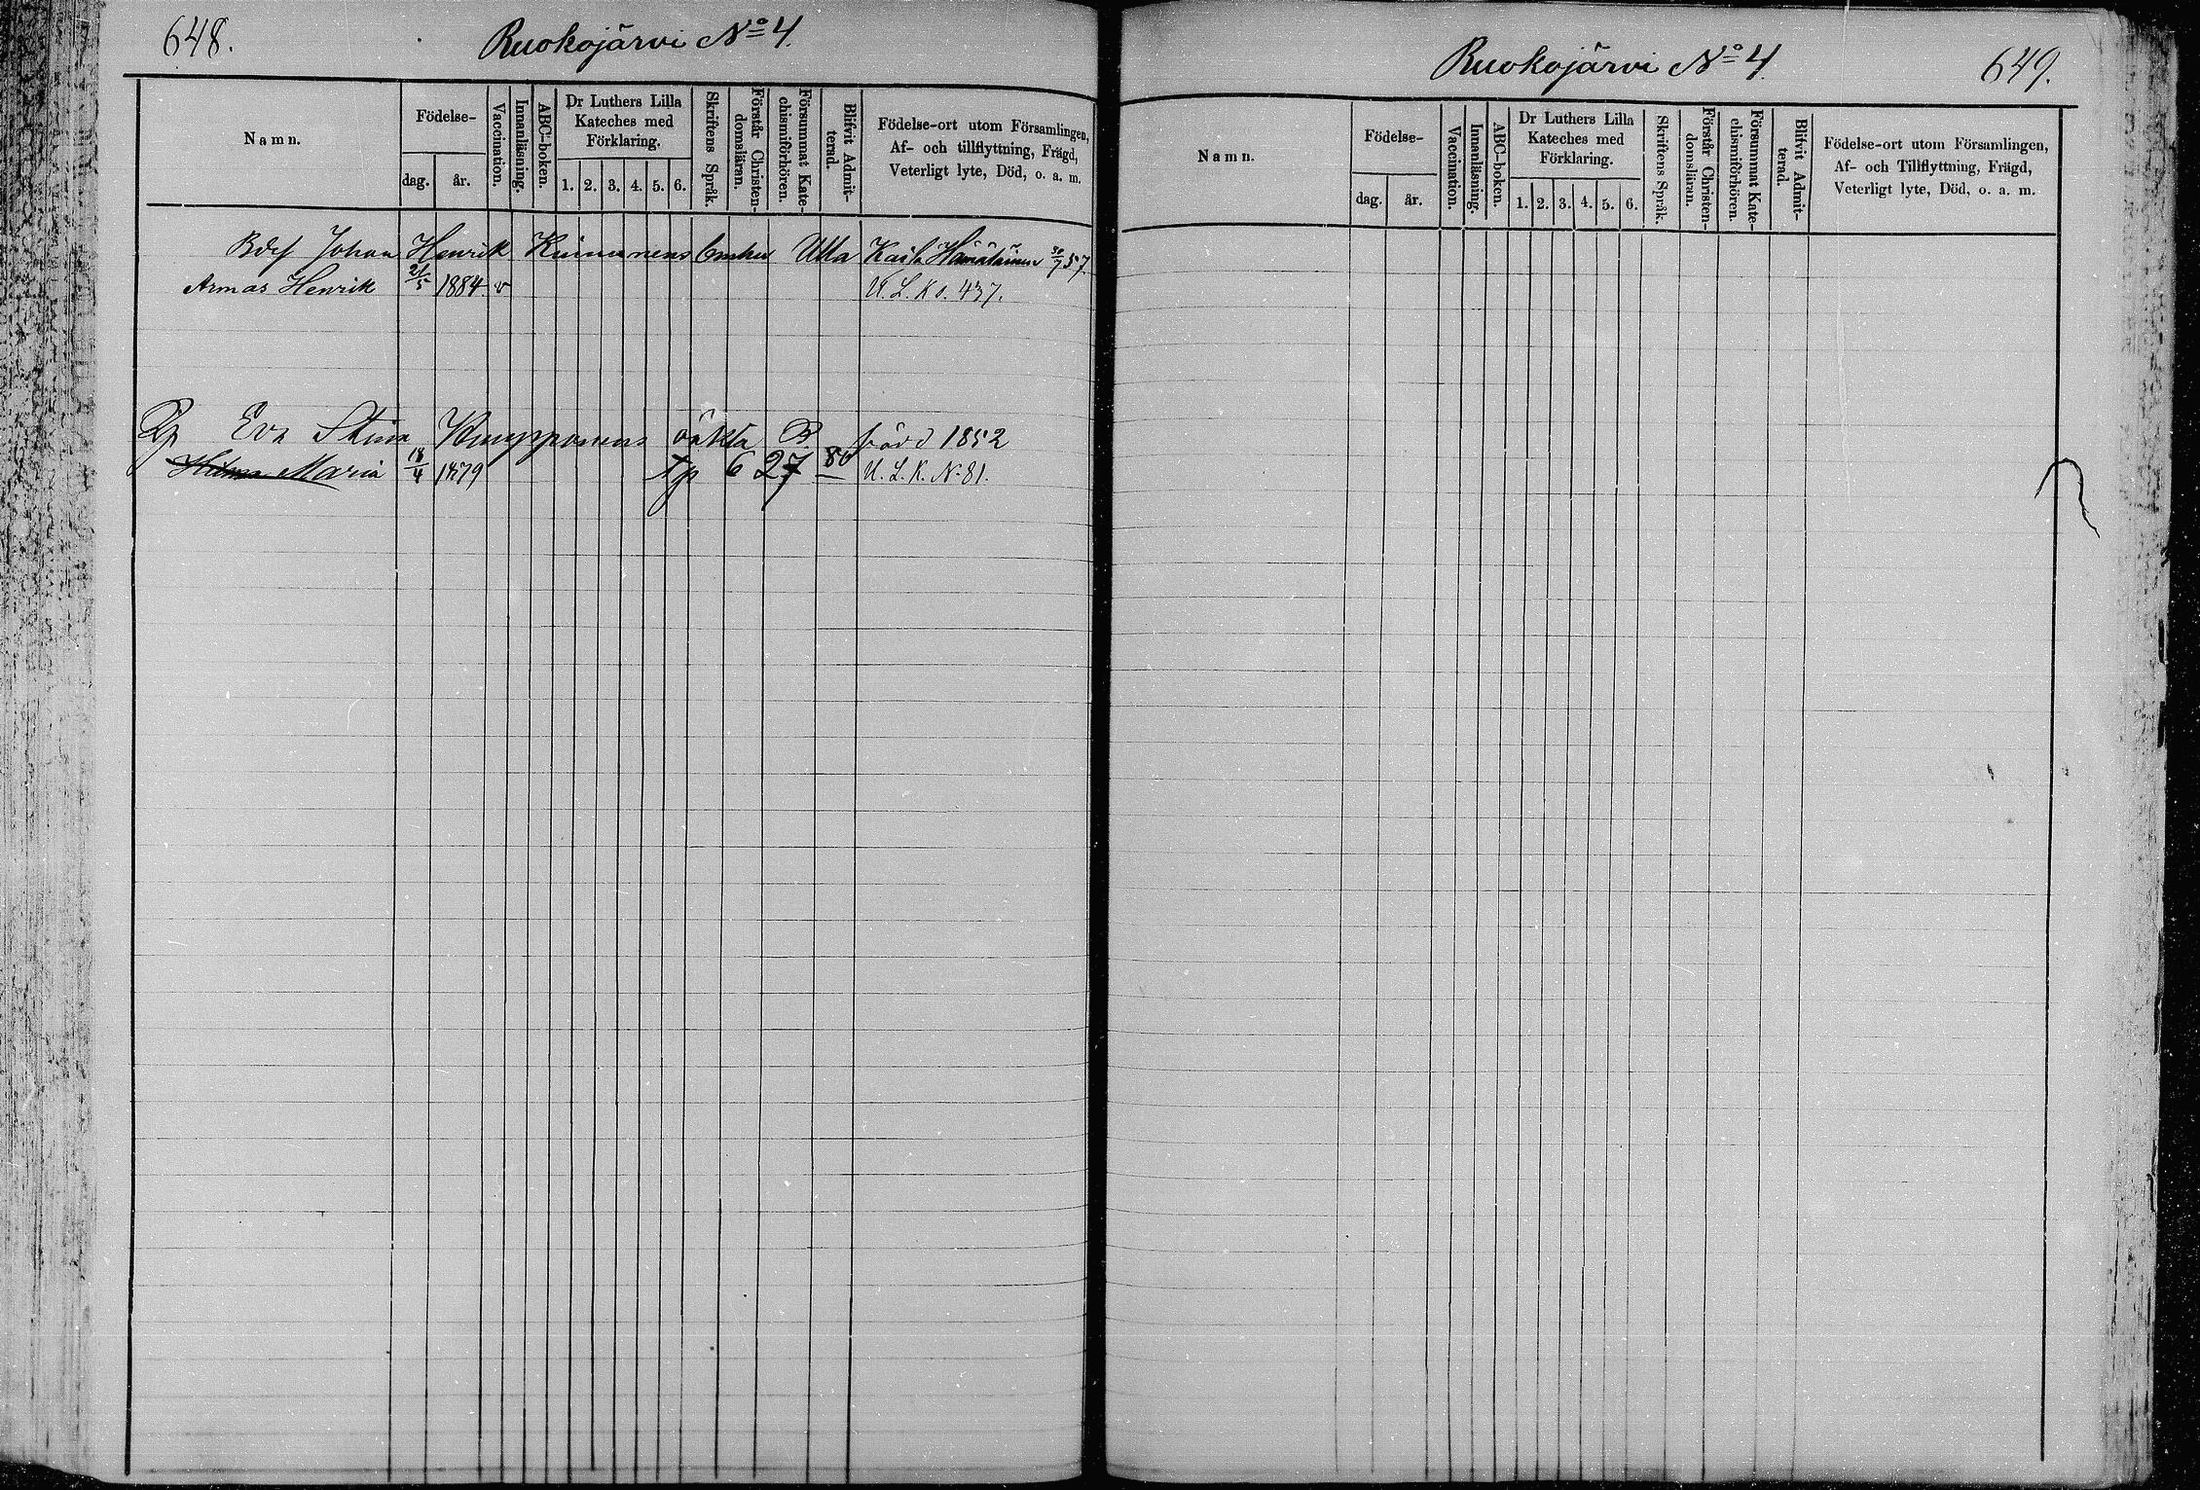 648.
Ruokojärvi No 4.
Namn.
Födelse-
dag. år.
Vaccination.
Innanläsning.
ABC-boken.
Dr Luthers Lilla
Kateches med
Förklaring.
1. 2. 3. 4. 5. 6.
Skriftens Språk.
Förstår Christen-
domsläran.
Försummat Kate-
chismiförhören.
Blifvit Admit-
terad.
Födelse-ort utom Församlingen,
Af- och tillflyttning, Frägd,
Veterligt lyte, Död, o. a. m.
Johan Henrik Enka Ulla Kaisa Hämäläinen 57.
Armas Henrik 21/5 1884. v U. L. K s. 437.
Eva Stina Kumpponens oäkta B. född 1852
Hilma Maria 18/4 1879 6 27 80 U. L. K. N. 81.
Ruokojärvi No 4.
649.
Namn.
Födelse-
dag. år.
Vaccination.
Innanläsning.
ABC-boken.
Dr Luthers Lilla
Kateches med
Förklaring.
1. 2. 3. 4. 5. 6.
Skriftens Språk.
Förstår Christen-
domsläran.
Försummat Kate-
chismiförhören.
Blifvit Admit-
terad.
Födelse-ort utom Församlingen,
Af- och Tillflyttning, Frägd,
Veterligt lyte, Död, o. a. m.